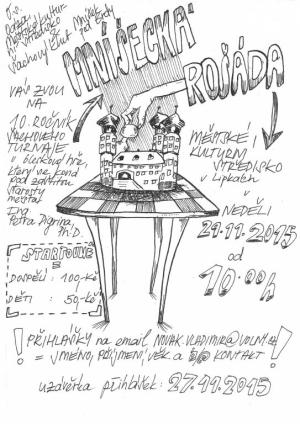 MNÍŠECKÁ
ROŠÁDA
VÁS ZVOU
NA
10. ROČNÍK
ŠACHOVÉHO
TURNAJE
v bleskové hře,
který se koná
pod záštitou
starosty
města
Ing.
Petra Digrina,
Ph.D.
MĚSTSKÉ
KULTURNÍ
STŘEDISKO
v Lipkách
v
NEDĚLI
29.11.2015
od
10.00h
STARTOVNÉ
=
DOSPĚLÍ: 100,-Kč
DĚTI: 50,-Kč
! PŘIHLÁŠKY na email NOVAK.VLADIMIR@VOLNY.CZ !
= JMÉNO, PŘÍJMENÍ, VĚK a KONTAKT
uzávěrka přihlášek: 27.11.2015